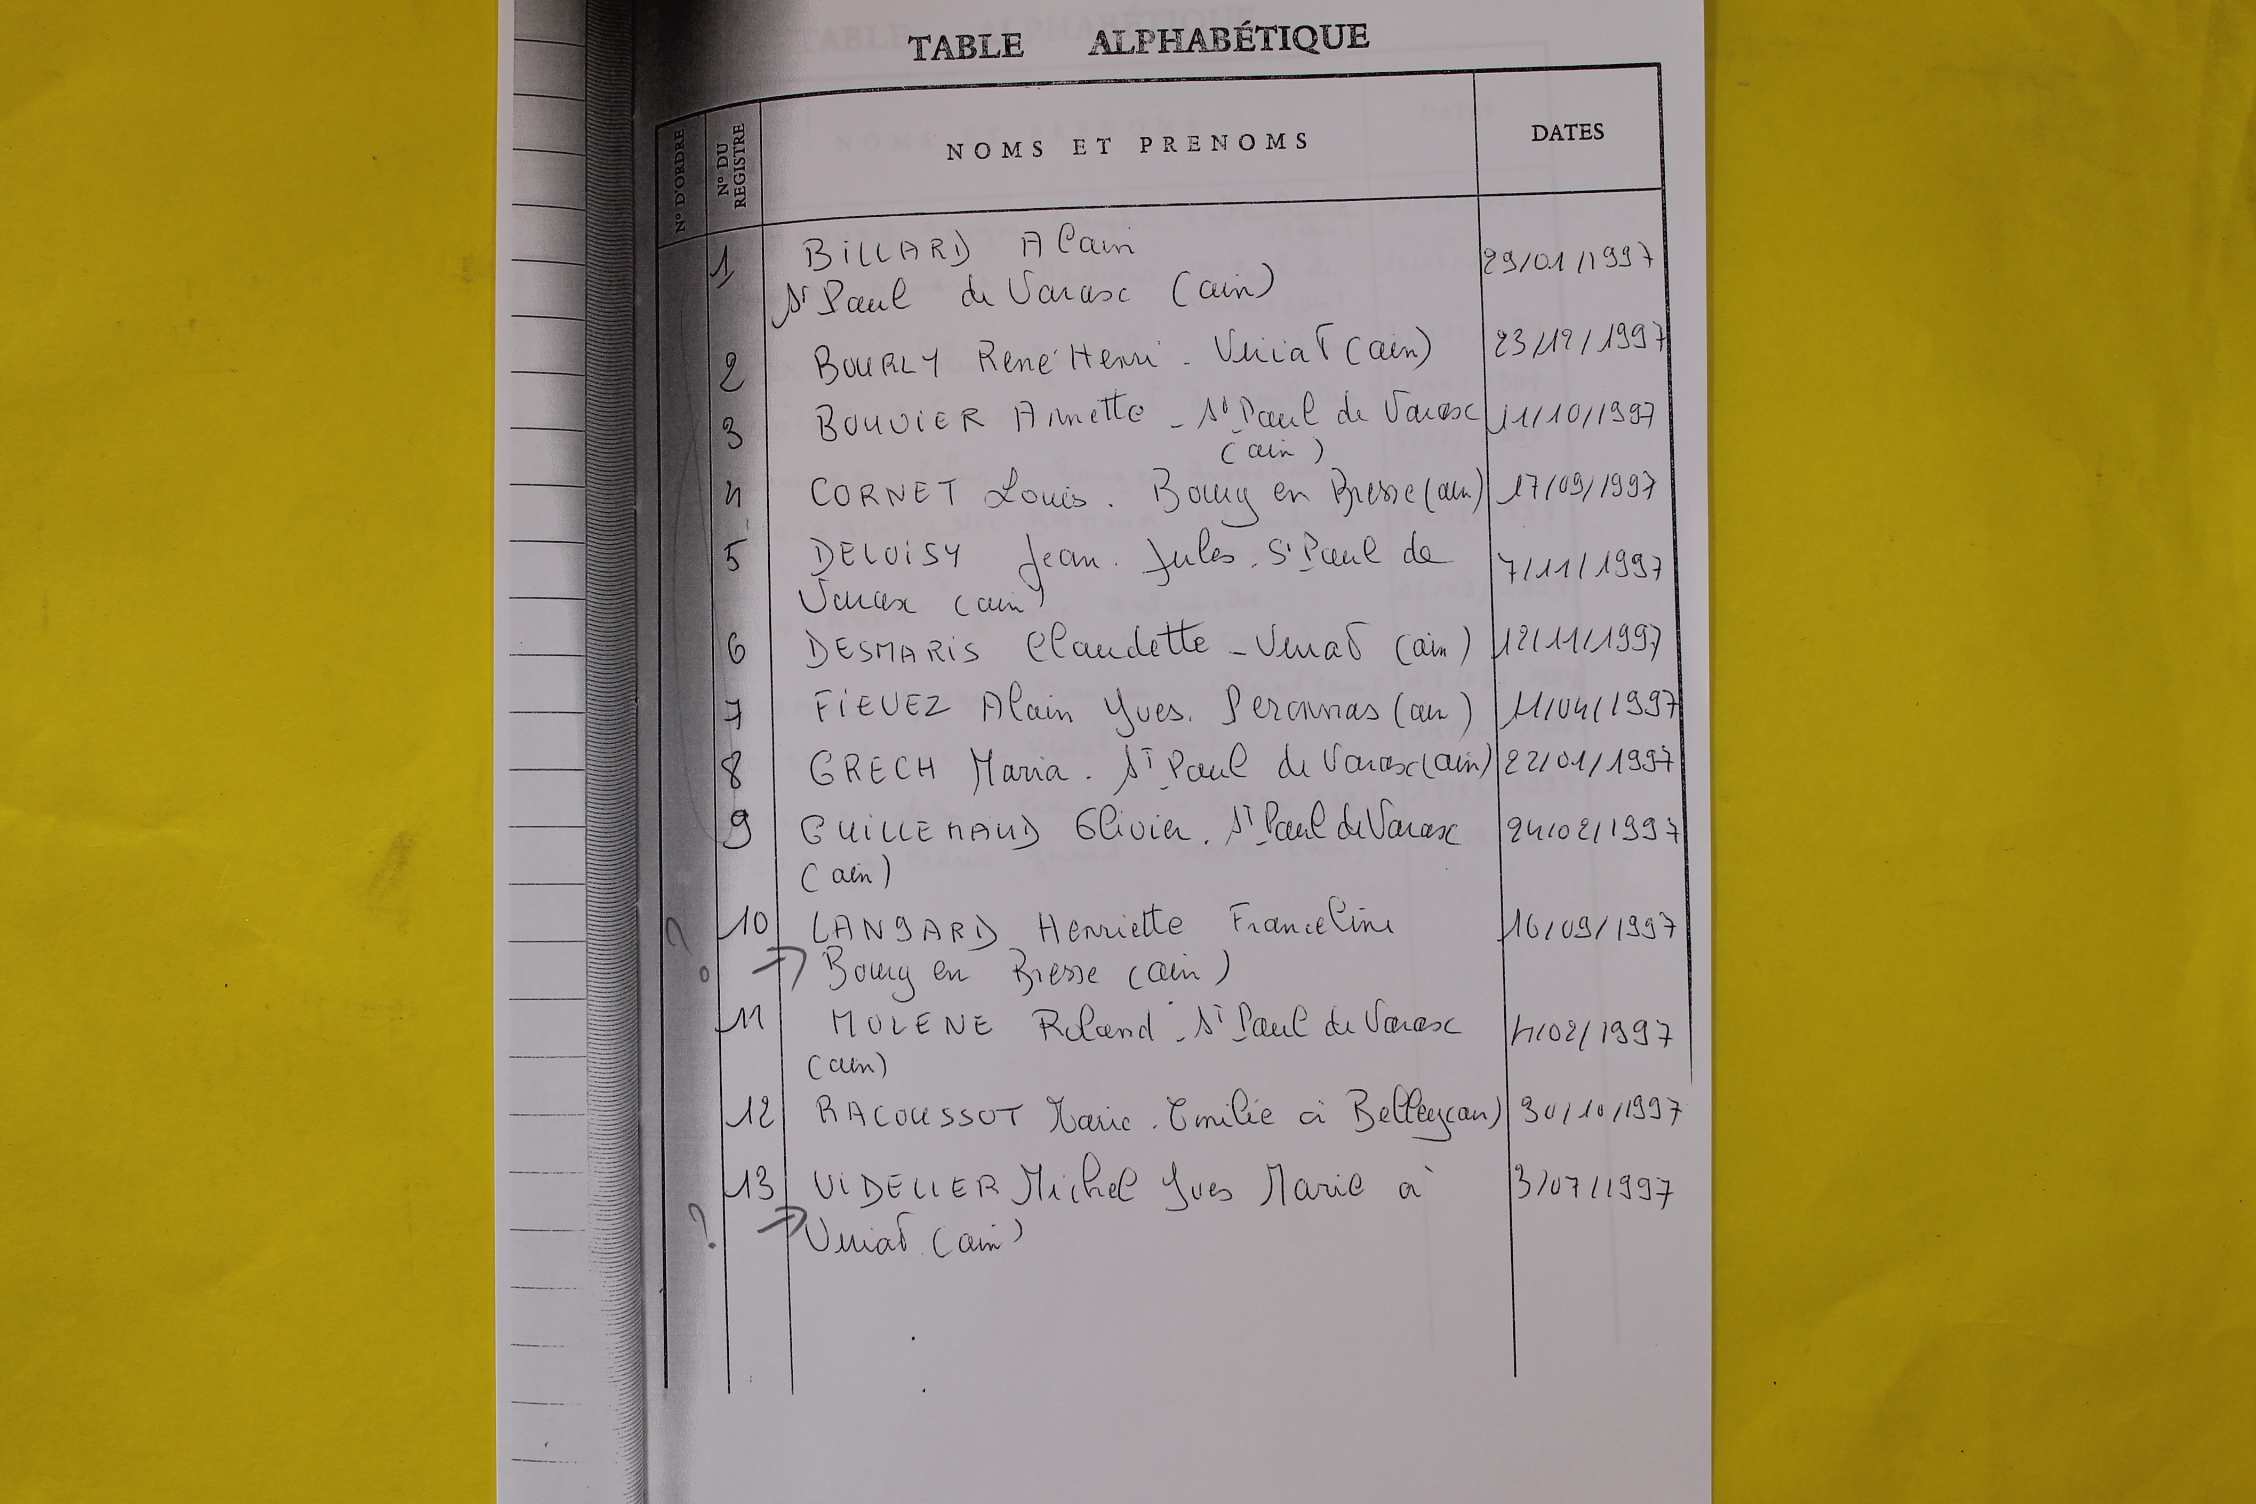 TABLE ALPHABÉTIQUE
N° D'ORDRE N° DU REGISTRE NOMS ET PRENOMS DATES
1 BILLARD Alain 29/01/1997
St Paul de Varax (ain)
2 BOURLY René Henri - Viriat (ain) 23/12/1997
3 BOUVIER Annette - St Paul de Varax 11/10/1997
(ain)
4 CORNET Louis. Bourg en Bresse (ain) 17/09/1997
5 DELOISY Jean. Jules. St Paul de 7/11/1997
Varax (ain)
6 DESMARIS Claudette - Viriat (ain) 12/11/1997
7 FIEVEZ Alain Yves. Peronnas (ain) 11/04/1997
8 GRECH Maria. St Paul de Varax (ain) 22/01/1997
9 GUILLEMAUD Olivier. St Paul de Varax 24/02/1997
(ain)
? 10 LANGARD Henriette Franceline 16/09/1997
→ Bourg en Bresse (ain)
11 MOLENE Roland - St Paul de Varax 4/02/1997
(ain)
12 RACOUSSOT Marie. Emilie à Belley (ain) 30/10/1997
13 VIDELIER Michel Yves Marie à 3/07/1997
? → Viriat (ain)